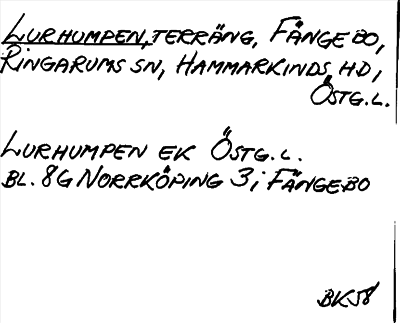 LURHUMPEN, TERRÄNG, FÄNGEBO,
RINGARUMS SN, HAMMARKINDS HD,
ÖSTG.L.
LURHUMPEN EK ÖSTG.L.
BL. 8G NORRKÖPING 3i FÄNGEBO
BK58